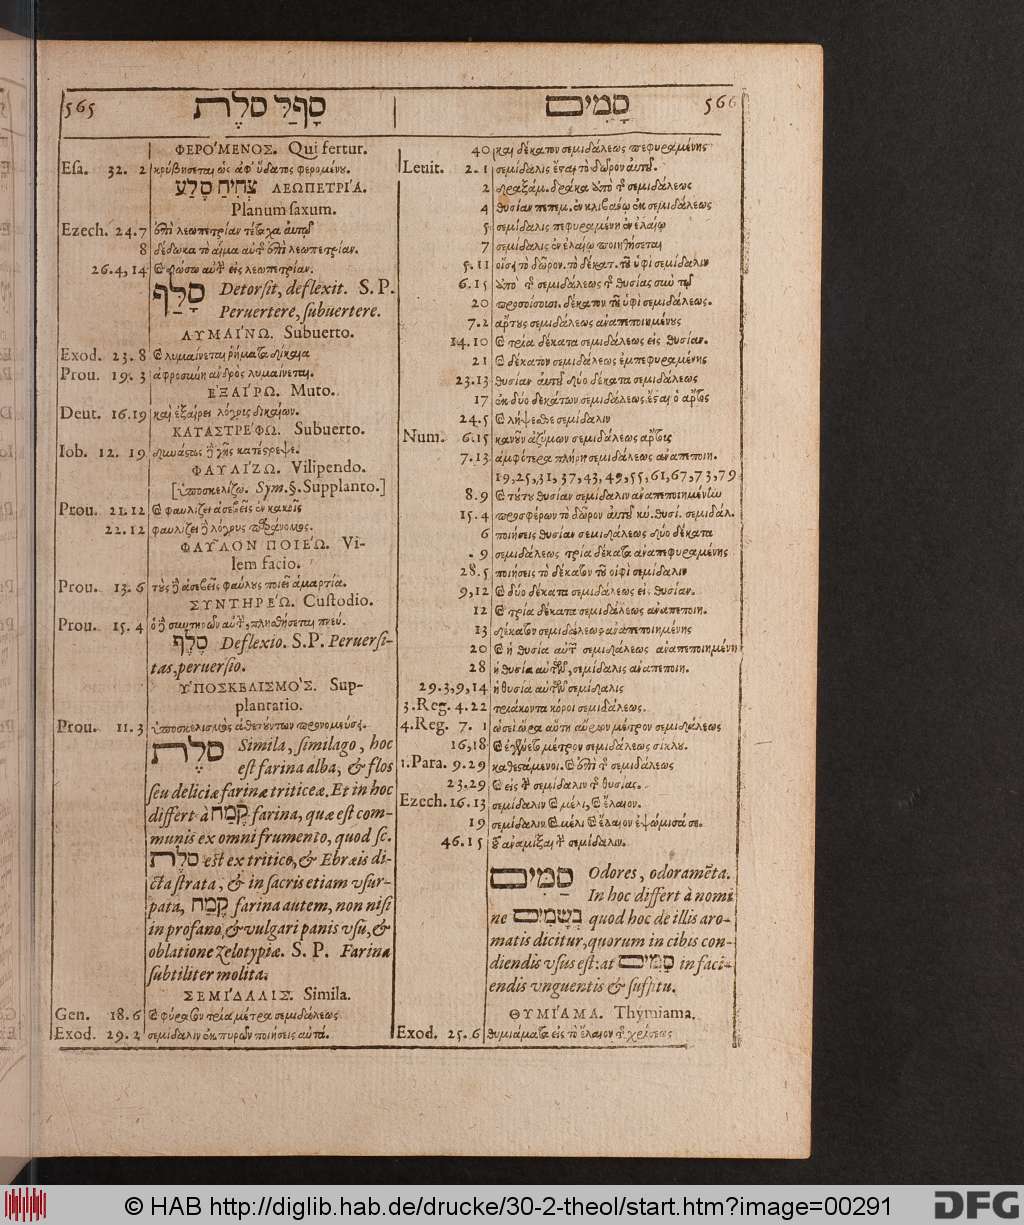 565 סָפַל סֹלֶת
סַמִּים 566
ΦΕΡΟ'ΜΕΝΟΣ. Qui fertur.
Esa. 32. 2 κρύβησεται ὡς ἀφ' ὕδατος φερομένου.
צְחִיחַ סֶלַע ΛΕΩΠΕΤΡΙ'Α.
Planum saxum.
Ezech. 24.7 ἐπὶ λεωπετρίαν τέταχα αὐτὸ
8 δέδωκα τὸ αἷμα αὐτῆς ἐπὶ λεωπετρίαν.
26.4, 14 καὶ δώσω αὐτὴν εἰς λεωπετρίαν.
סָלַף Detorsit, deflexit. S. P.
Peruertere, subuertere.
ΛΥΜΑΙ'ΝΩ. Subuerto.
Exod. 23. 8 καὶ λυμαίνεται ῥήματα δίκαια
Prou. 19. 3 ἀφροσύνη ἀνδρὸς λυμαίνεται.
ΕΞΑΙ'ΡΩ. Muto.
Deut. 16.19 καὶ ἐξαίρει λόγους δικαίων.
ΚΑΤΑΣΤΡΕ'ΦΩ. Subuerto.
Iob. 12. 19 δυνάστας δὲ γῆς κατέστρεψε.
ΦΑΥΛΙ'ΖΩ. Vilipendo.
[ὑποσκελίζω. Sym. §. Supplanto.]
Prou. 21.12 καὶ φαυλίζει ἀσεβεῖς ἐν κακοῖς
22.12 φαυλίζει δὲ λόγους παράνομος.
ΦΑΥ͂ΛΟΝ ΠΟΙΕ'Ω. Vi-
lem facio.
Prou. 13. 6 τοὺς δὲ ἀσεβεῖς φαύλους ποιεῖ ἁμαρτία.
ΣΥΝΤΗΡΕ'Ω. Custodio.
Prou. 15. 4 ὁ δὲ συντηρῶν αὐτὴν, πλησθήσεται πνεύ.
סֶלֶף Deflexio. S. P. Peruersi-
tas, peruersio.
ΥΠΟΣΚΕΛΙΣΜΟ'Σ. Sup-
plantatio.
Prou. 11. 3 ὑποσκελισμὸς ἀθετούντων προνομεύσ.
סֹלֶת Simila, similago, hoc
est farina alba, & flos
seu deliciæ farinæ triticeæ. Et in hoc
differt à קֶמַח farina, quæ est com-
munis ex omni frumento, quod sc.
סֹלֶת est ex tritico, & Ebræis di-
cta strata, & in sacris etiam vsur-
pata, קֶמַח farina autem, non nisi
in profano, & vulgari panis vsu, &
oblatione zelotypiæ. S. P. Farina
subtiliter molita.
ΣΕΜΙ'ΔΑΛΙΣ. Simila.
Gen. 18. 6 καὶ φύρασον τρία μέτρα σεμιδάλεως
Exod. 29. 2 σεμίδαλιν ἐκ πυρῶν ποιήσεις αὐτά.
40 καὶ δέκατον σεμιδάλεως πεφυραμένης
Leuit. 2. 1 σεμίδαλις ἔσται τὸ δῶρον αὐτοῦ.
2 δραξάμ. δράκα ἀπὸ τῆς σεμιδάλεως
4 θυσίαν πεπεμ. ἐν κλιβάνῳ ἐκ σεμιδάλεως
5 σεμίδαλις πεφυραμένη ἐν ἐλαίῳ
7 σεμίδαλις ἐν ἐλαίῳ ποιηθήσεται
5. 11 οἴσει τὸ δῶρον. τὸ δέκατ. τοῦ ὑφὶ σεμίδαλιν
6. 15 ἀπὸ τῆς σεμιδάλεως τῆς θυσίας σὺν τῷ
20 προσοίσουσι. δέκατον τοῦ ὑφὶ σεμιδάλεως.
7. 2 ἄρτους σεμιδάλεως ἀναπεποιημένους
14. 10 καὶ τρία δέκατα σεμιδάλεως εἰς θυσίαν.
21 καὶ δέκατον σεμιδάλεως ἐμπεφυραμένης
23.13 θυσίαν αὐτοῦ δύο δέκατα σεμιδάλεως
17 ἐκ δύο δεκάτων σεμιδάλεως ἔσται ὁ ἄρτος
24. 5 καὶ λήψεσθε σεμίδαλιν
Num. 6.15 κανοῦν ἀζύμων σεμιδάλεως ἄρτοις
7.13 ἀμφότερα πλήρη σεμιδάλεως ἀναπεποιη.
19, 25, 31, 37, 43, 49, 55, 61, 67, 73, 79
8. 9 καὶ τούτου θυσίαν σεμίδαλιν ἀναπεποιημένην
15. 4 προσφέρων τὸ δῶρον αὐτοῦ κυ. θυσί. σεμιδάλ.
6 ποιήσεις θυσίαν σεμιδάλεως δύο δέκατα
9 σεμιδάλεως τρία δέκατα ἀναπεφυραμένης
28. 5 ποιήσεις τὸ δέκατον τοῦ οἰφὶ σεμίδαλιν
9, 12 καὶ δύο δέκατα σεμιδάλεως εἰς θυσίαν.
12 καὶ τρία δέκατα σεμιδάλεως ἀναπεποιη.
13 δέκατον σεμιδάλεως ἀναπεποιημένης
20 καὶ ἡ θυσία αὐτῶν σεμιδάλεως ἀναπεποιημένη
28 ἡ θυσία αὐτῶν, σεμίδαλις ἀναπεποιη.
29. 3, 9, 14 ἡ θυσία αὐτῶν σεμίδαλις
3. Reg. 4. 22 τριάκοντα κόροι σεμιδάλεως.
4. Reg. 7. 1 ὡσεὶ ὥρα αὕτη αὔριον μέτρον σεμιδάλεως
16, 18 καὶ ἐγένετο μέτρον σεμιδάλεως σίκλου.
1. Para. 9. 29 καθεσταμένοι. καὶ ἐπὶ τῆς σεμιδάλεως
23. 29 καὶ εἰς τὴν σεμίδαλιν τῆς θυσίας.
Ezech. 16. 13 σεμίδαλιν καὶ μέλι, καὶ ἔλαιον.
19 σεμίδαλιν καὶ μέλι καὶ ἔλαιον ἐψώμισά σε.
46. 15 τοῦ ἀναμῖξαι τὴν σεμίδαλιν.
סַמִּים Odores, odoramēta.
In hoc differt à nomi
ne בְּשָׂמִים quod hoc de illis aro-
matis dicitur, quorum in cibis con-
diendis vsus est: at סַמִּים in faci-
endis vnguentis & suffitu.
ΘΥΜΙ'ΑΜΑ. Thymiama.
Exod. 25. 6 θυμιάματα εἰς τὸ ἔλαιον τῆς χρίσεως
© HAB http://diglib.hab.de/drucke/30-2-theol/start.htm?image=00291
DFG